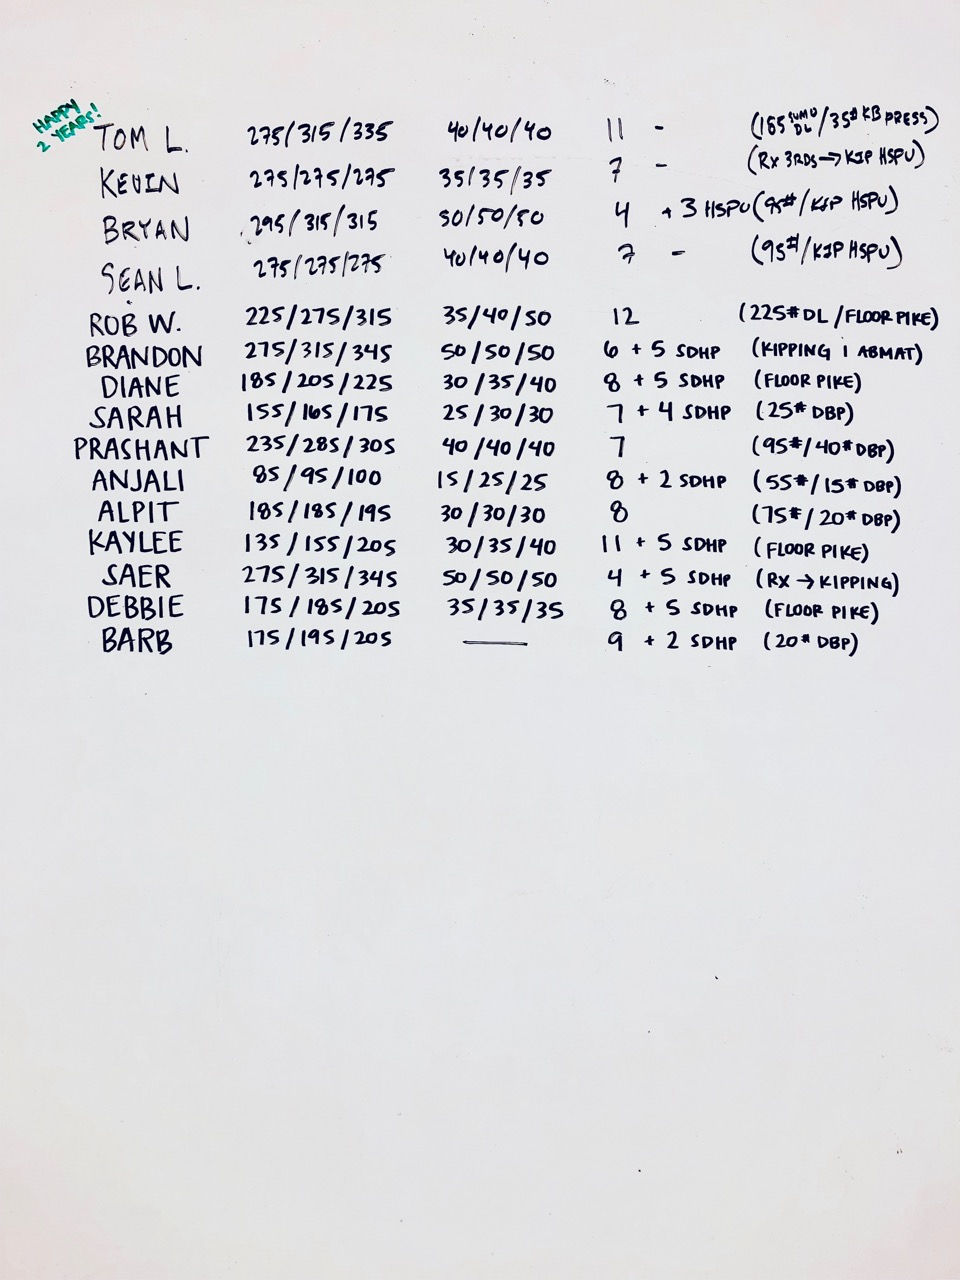 HAPPY
2 YEARS!
TOM L. 275/315/335 40/40/40 11 - (185 SUMO DL/35# KB PRESS)
KEVIN 275/275/275 35/35/35 7 - (RX 3RDS→KIP HSPU)
BRYAN 295/315/315 50/50/50 4 +3 HSPU (95#/KIP HSPU)
SEAN L. 275/275/275 40/40/40 7 - (95#/KIP HSPU)
ROB W. 225/275/315 35/40/50 12 (225# DL/FLOOR PIKE)
BRANDON 275/315/345 50/50/50 6 + 5 SDHP (KIPPING 1 ABMAT)
DIANE 185/205/225 30/35/40 8 + 5 SDHP (FLOOR PIKE)
SARAH 155/165/175 25/30/30 7 + 4 SDHP (25# DBP)
PRASHANT 235/285/305 40/40/40 7 (95#/40# DBP)
ANJALI 85/95/100 15/25/25 8 + 2 SDHP (55#/15# DBP)
ALPIT 185/185/195 30/30/30 8 (75#/20# DBP)
KAYLEE 135/155/205 30/35/40 11 + 5 SDHP (FLOOR PIKE)
SAER 275/315/345 50/50/50 4 + 5 SDHP (RX→KIPPING)
DEBBIE 175/185/205 35/35/35 8 + 5 SDHP (FLOOR PIKE)
BARB 175/195/205 — 9 + 2 SDHP (20# DBP)